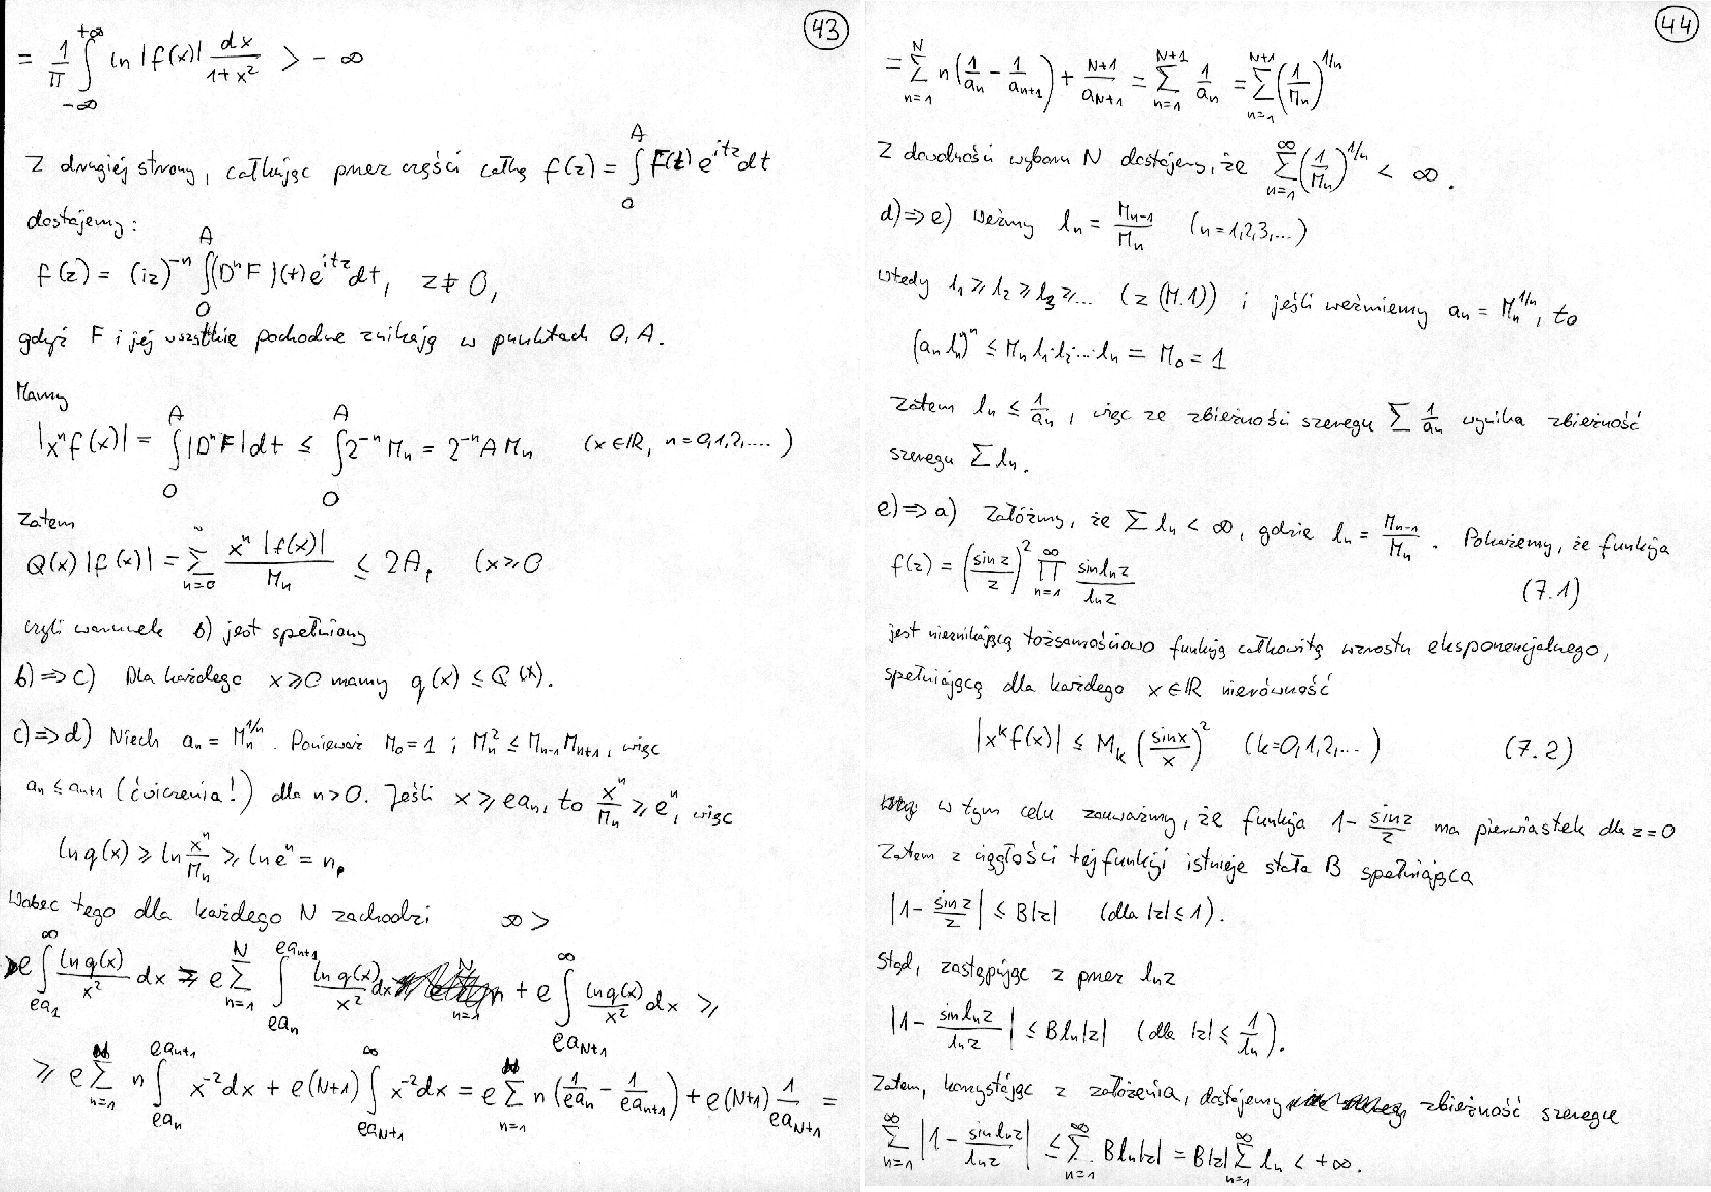 43
= \frac{1}{\pi} \int_{-\infty}^{+\infty} ln |f(x)| \frac{dx}{1+x^2} > -\infty
Z drugiej strony, całkując przez części całkę f(z) = \int_0^A F(t) e^{itz} dt
dostajemy:
f(z) = (iz)^{-n} \int_0^A (D^n F)(t) e^{itz} dt, z ≠ 0,
gdyż F i jej wszystkie pochodne znikają w punktach 0, A.
Mamy
|x^n f(x)| = \int_0^A |D^n F| dt ≤ \int_0^A 2^{-n} M_n = 2^{-n} A M_n (x ∈ ℝ, n = 0,1,2,....)
Zatem
Q(x) |f(x)| = \sum_{n=0}^{\infty} \frac{x^n |f(x)|}{M_n} ≤ 2A, (x ≥ 0
czyli warunek b) jest spełniony
b) => c) Dla każdego x ≥ 0 mamy q(x) ≤ Q(x).
c) => d) Niech a_n = M_n^{1/n}. Ponieważ M_0 = 1 i M_n^2 ≤ M_{n-1} M_{n+1}, więc
a_n ≤ a_{n+1} (ćwiczenia!) dla n > 0. Jeśli x ≥ e a_n, to \frac{x^n}{M_n} ≥ e^n, więc
ln q(x) ≥ ln \frac{x^n}{M_n} ≥ ln e^n = n,
Wobec tego dla każdego N zachodzi ∞ >
> e \int_{ea_1}^{\infty} \frac{ln q(x)}{x^2} dx ≥ e \sum_{n=1}^{N} \int_{ea_n}^{ea_{n+1}} \frac{ln q(x)}{x^2} dx + e \int_{ea_{N+1}}^{\infty} \frac{ln q(x)}{x^2} dx ≥
≥ e \sum_{n=1}^{N} n \int_{ea_n}^{ea_{n+1}} x^{-2} dx + e(N+1) \int_{ea_{N+1}}^{\infty} x^{-2} dx = e \sum_{n=1}^{N} n (\frac{1}{ea_n} - \frac{1}{ea_{n+1}}) + e(N+1) \frac{1}{ea_{N+1}} =
44
= \sum_{n=1}^{N} n (\frac{1}{a_n} - \frac{1}{a_{n+1}}) + \frac{N+1}{a_{N+1}} = \sum_{n=1}^{N+1} \frac{1}{a_n} = \sum_{n=1}^{N+1} (\frac{1}{M_n})^{1/n}
Z dowolności wyboru N dostajemy, że \sum_{n=1}^{\infty} (\frac{1}{M_n})^{1/n} < ∞.
d) => e) Weźmy l_n = \frac{M_{n-1}}{M_n} (n = 1,2,3,...)
wtedy l_1 ≥ l_2 ≥ l_3 ≥ ... (z (M.1)) i jeśli weźmiemy a_n = M_n^{1/n}, to
(a_n l_n)^n ≤ M_n l_1 · l_2 · ... · l_n = M_0 = 1
Zatem l_n ≤ \frac{1}{a_n}, więc ze zbieżności szeregu ∑ \frac{1}{a_n} wynika zbieżność
szeregu ∑ l_n.
e) => a) Załóżmy, że ∑ l_n < ∞, gdzie l_n = \frac{M_{n-1}}{M_n}. Pokażemy, że funkcja
f(z) = (\frac{sin z}{z})^2 \prod_{n=1}^{\infty} \frac{sin l_n z}{l_n z} (7.1)
jest nieznikającą tożsamościowo funkcją całkowitą wzrostu eksponencjalnego,
spełniającą dla każdego x ∈ ℝ nierówność
|x^k f(x)| ≤ M_k (\frac{sin x}{x})^2 (k = 0,1,2,...) (7.2)
w tym celu zauważmy, że funkcja 1 - \frac{sin z}{z} ma pierwiastek dla z = 0
Zatem z ciągłości tej funkcji istnieje stała B spełniająca
|1 - \frac{sin z}{z}| ≤ B|z| (dla |z| ≤ 1).
Stąd, zastępując z przez l_n z
|1 - \frac{sin l_n z}{l_n z}| ≤ B l_n |z| (dla |z| ≤ \frac{1}{l_n}).
Zatem, korzystając z założenia, dostajemy zbieżność szeregu
\sum_{n=1}^{\infty} |1 - \frac{sin l_n z}{l_n z}| ≤ \sum_{n=1}^{\infty} B l_n |z| = B|z| \sum_{n=1}^{\infty} l_n < +∞.